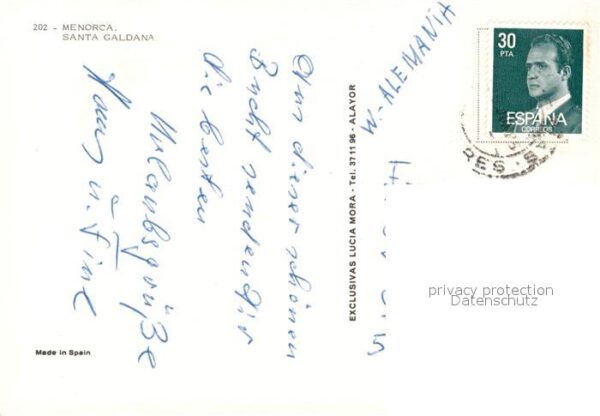 202 - MENORCA.
SANTA GALDANA
Aus dieser schönen
Bucht senden Dir
die besten
Urlaubsgrüße
Made in Spain
EXCLUSIVAS LUCIA MORA - Tel. 37 11 96 - ALAYOR
W. ALEMANIA
30
PTA
ESPAÑA
CORREOS
RES
privacy protection
Datenschutz